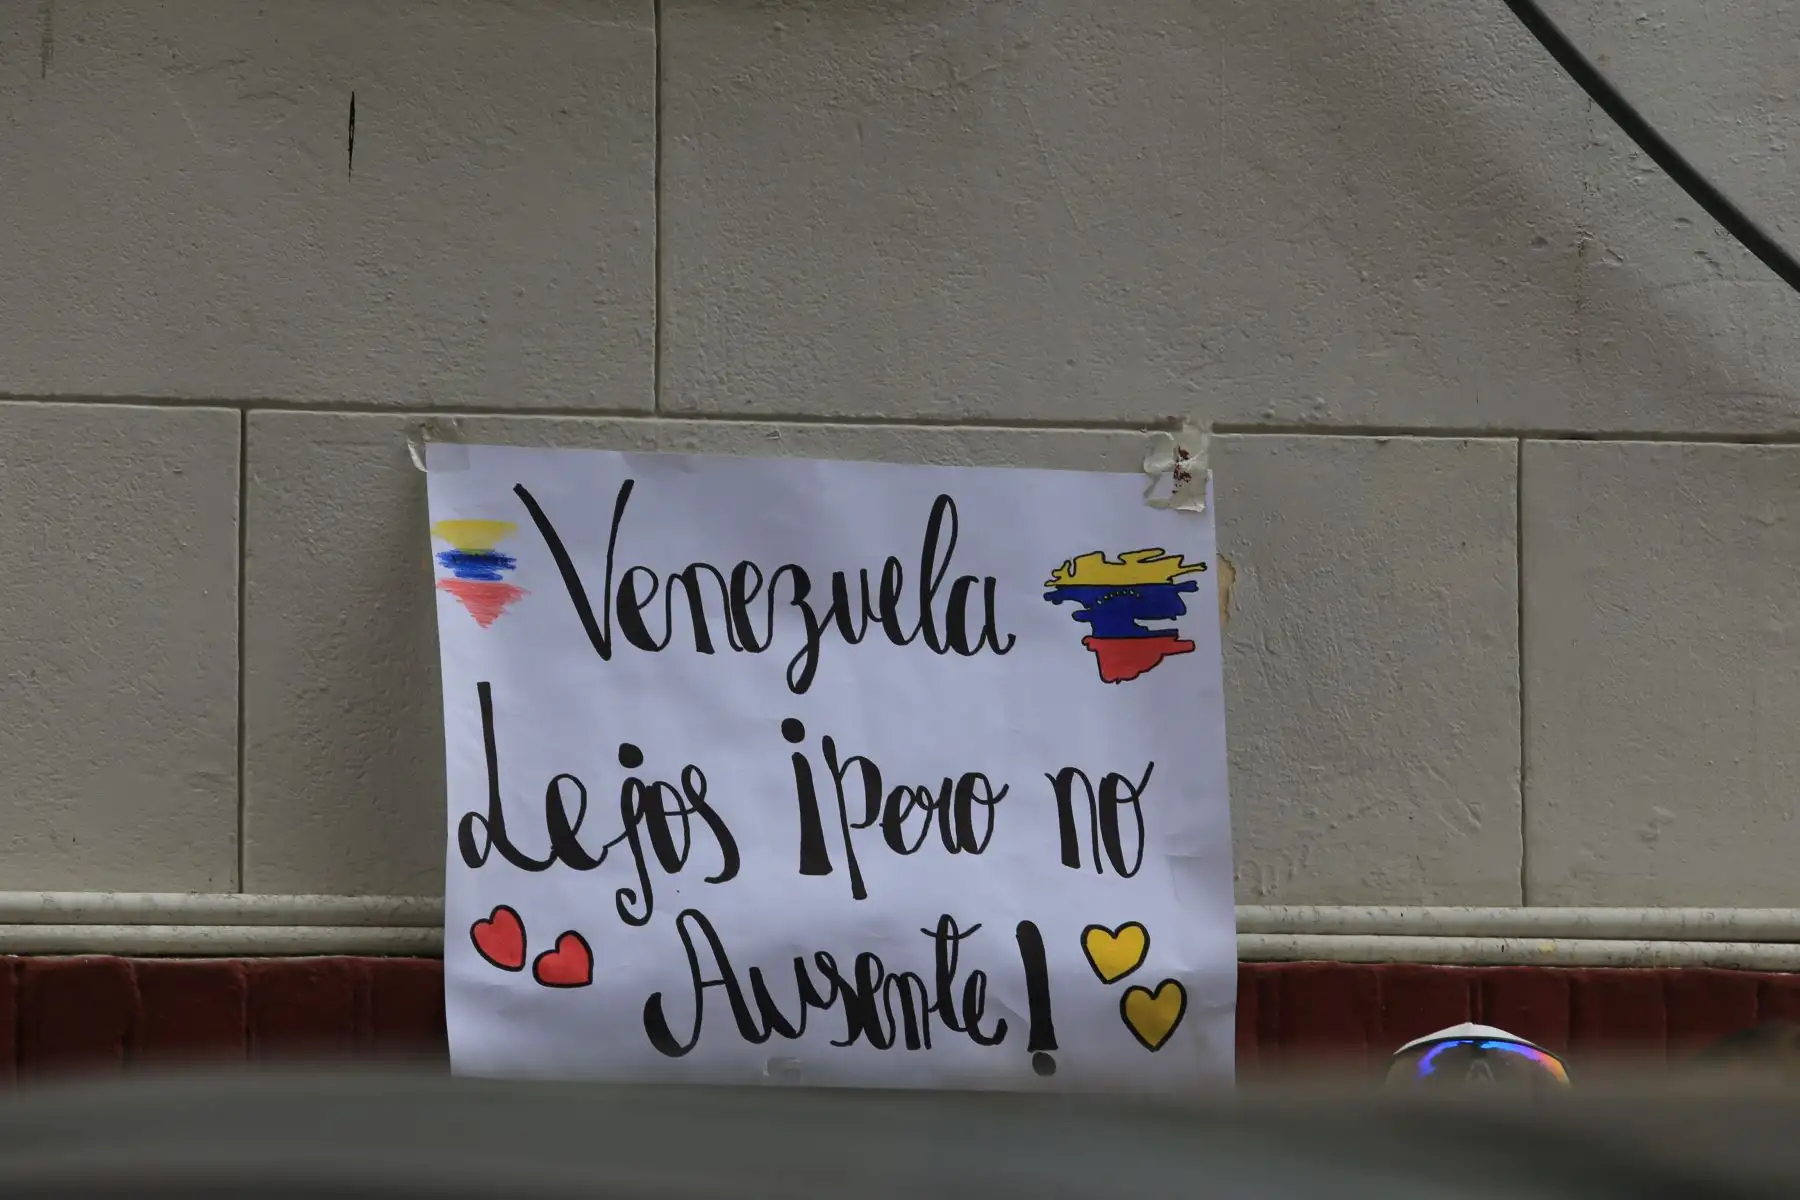 Venezuela
Lejos ¡pero no
Ausente!